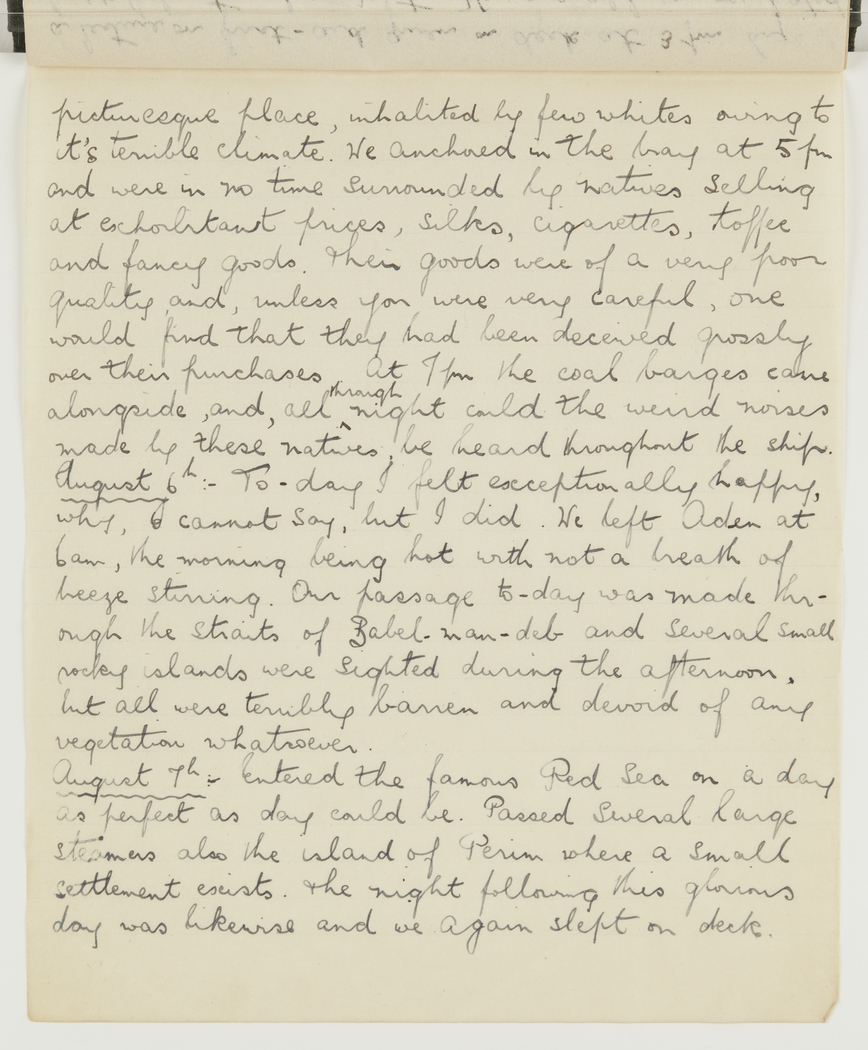 picturesque place, inhabited by few whites owing to
it's terrible climate. We anchored in the bay at 5 pm
and were in no time surrounded by natives selling
at exhorbitant prices, silks, cigarettes, toffee
and fancy goods. Their goods were of a very poor
quality and, unless you were very careful, one
would find that they had been deceived grossly
over their purchases At 7 pm the coal barges came
through
alongside, and, all ^ night could the weird noises
made by these natives, be heard throughout the ship.
August 6th:- To-day I felt exceptionally happy,
why, I cannot say, but I did. We left Aden at
6am, the morning being hot with not a breath of
breeze stirring. Our passage to-day was made thr-
ough the Straits of Babel-man-deb and several small
rocky islands were sighted during the afternoon,
but all were terribly barren and devoid of any
vegetation whatsoever.
August 7th:- Entered the famous Red Sea on a day
as perfect as day could be. Passed several large
steamers also the island of Perim where a small
settlement exists. The night following this glorious
day was likewise and we again slept on deck.